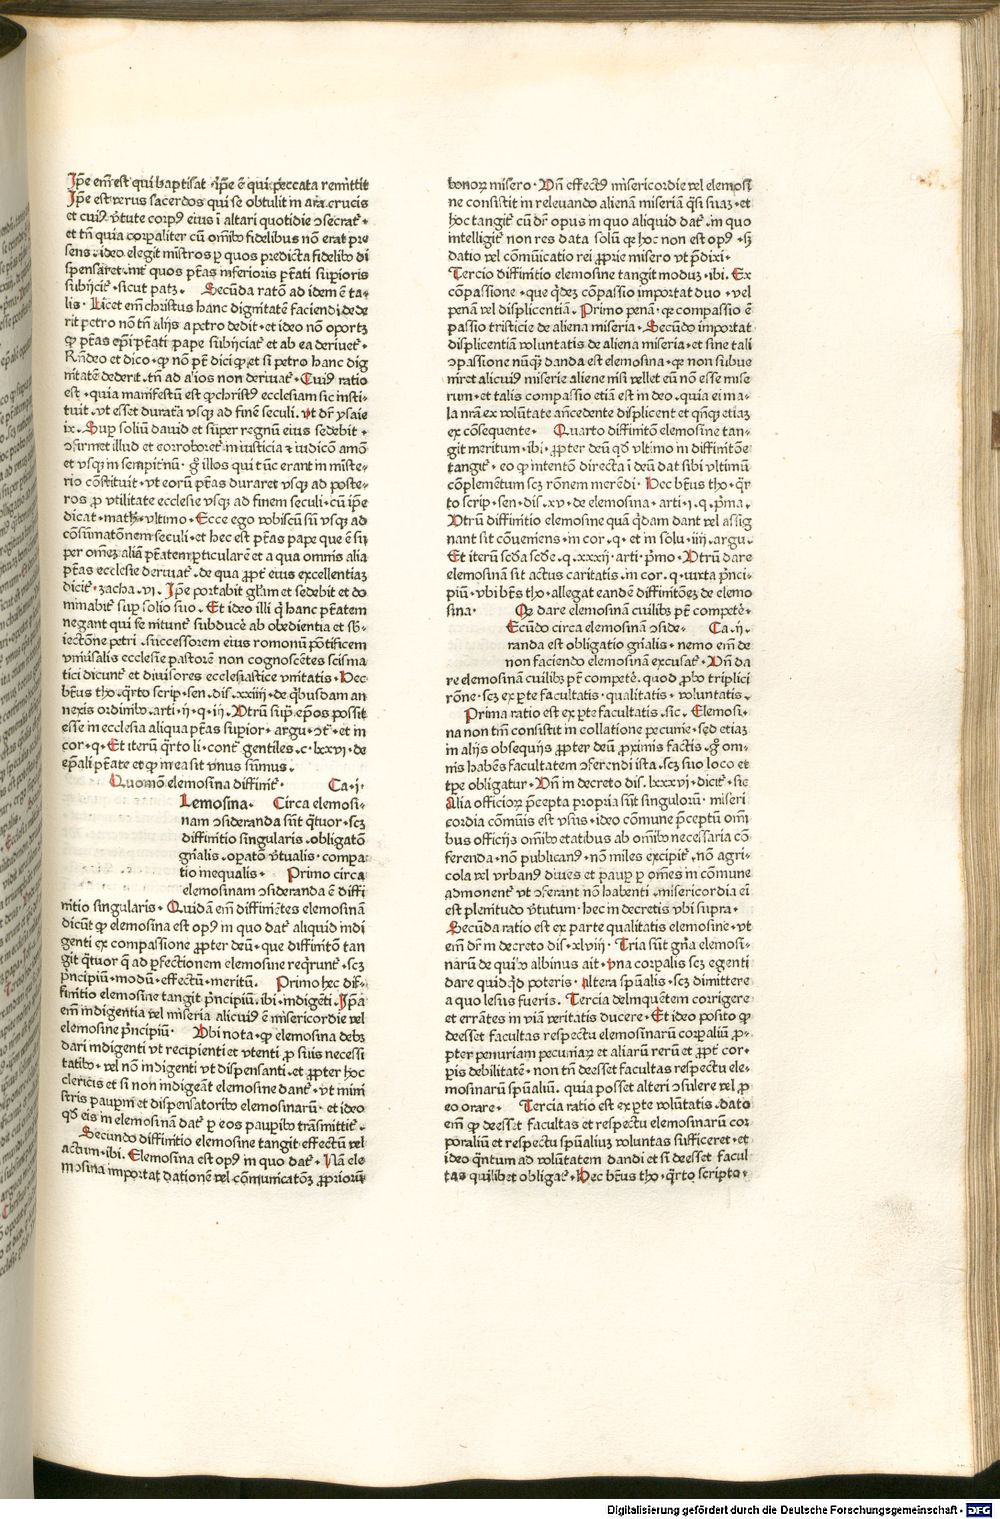 Ip̄e em̄ est qui baptisat · ip̄e ē qui peccata remittit
Ip̄e est verus sacerdos qui se obtulit in ara crucis
et cuiꝰ v̄tute corpꝰ eius ī altari quotidie ꝯsecrat᷑ ·
et tn̄ quia corꝑaliter cū om̄ibꝰ fidelibus nō erat pre
sens · ideo elegit mīstros ꝑ quos predicta fidelibꝰ di
spensaret · int᷑ quos ptāas inferioris ptāti suꝑioris
subijcit᷑ · sicut patꝫ · Secūda ratō ad idem ē ta⸗
lis · Licet em̄ christus hanc dignitatē faciendi dede
rit petro nō tn̄ alijs a petro dedit · et ideo nō oportꝫ
ꝙ ptāas ep̄i ptāti pape subijciat᷑ et ab ea deriuet᷑ ·
Rn̄deo et dico · ꝙ nō pōt dici ꝙ et si petro hanc dig
nitatē dederit · tn̄ ad alios non deriuat᷑ · Cuiꝰ ratio
est · quia manifestū est ꝙ christꝰ ecclesiam sic insti⸗
tuit · vt esset durata vsqꝫ ad finē seculi · vt dr̄ ysaie
ix · Suꝑ soliū dauid et super regnū eius sedebit ·
ꝯfirmet illud et corroboret᷑ in iusticia ⁊ iudicō amō
et vsqꝫ in sempit᷑nū · g̊ illos qui tūc erant in mīste⸗
rio cōstituit · vt eorū ptāas duraret vsqꝫ ad poste⸗
ros ꝓ vtilitate ecclesie vsqꝫ ad finem seculi · cū ip̄e
dicat · math · vltimo · Ecce ego vobiscū sū vsqꝫ ad
cōsūmatōnem seculi · et hec est ptāas pape que ē su
per omēꝫ aliā ptātem ꝑticularē et a qua omnis alia
ptāas ecclesie deriuat᷑ · de qua ꝓpt᷑ eius excellentiaꝫ
dicit᷑ · zacha · vi · Ip̄e portabit gl̄am et sedebit et do
minabit᷑ suꝑ solio suo · Et ideo illi q̄ hanc ptātem
negant qui se nitunt᷑ subducē ab obedientia et sb̄⸗
iectōne petri · successorem eius romonū pōtificem
vniūsalis ecclesie pastorē non cognoscētes scisma
tici dicunt᷑ et diuisores ecclesiastice vnitatis · Hec
btūs tho · q̄rto scrip · sen · dis · xxiiij · de q̄busdam an
nexis ordinibꝰ · arti · ij · q · iij · Vtrū sup̄ ep̄os possit
esse in ecclesia aliqua ptāas suꝑior · argu · ꝯt᷑ · et in
cor · q · Et iterū q̄rto li · cont᷑ gentiles · c · lxxvi · de
ep̄ali ptāte et ꝙ in ea sit vnus sūmus ·
Quomō elemosina diffinit᷑ · Ca · i ·
Lemosina · Circa elemosi⸗
nam ꝯsideranda sūt q̄tuor · scꝫ
diffinitio singularis · obligatō
gn̄alis · oꝑatō v̄tualis · compa
tio inequalis · Primo circa
elemosinam ꝯsideranda ē diffi
nitio singularis · Quidā em̄ diffinientes elemosinā
dicūt ꝙ elemosina est opꝰ in quo dat᷑ aliquid indi
genti ex compassione ꝓpter deū · que diffinitō tan
git q̄tuor q̄ ad ꝑfectionem elemosine req̄runt᷑ · scꝫ
pn̄cipiū · modū · effectū · meritū · Primo hec dif⸗
finitio elemosine tangit pn̄cipiū · ibi · indigēti · Ip̄a
em̄ indigentia vel miseria alicuiꝰ ē misericordie vel
elemosine pn̄cipiū · Vbi nota · ꝙ elemosina debꝫ
dari indigenti vt recipienti et vtenti ꝓ suis necessi
tatibꝰ · vel nō indigenti vt dispensanti · et ꝓpter hoc
clericis et si non indigeāt elemosine dant᷑ · vt mini
stris pauꝑum et dispensatoribꝰ elemosinarū · et ideo
qd̄ eis in elemosinā dat᷑ ꝑ eos pauꝑibꝰ trāsmittit᷑ ·
Secundo diffinitio elemosine tangit effectū vel
actum · ibi · Elemosina est opꝰ in quo dat᷑ · Nā ele
mosina importat dationē vel cōmunicatōꝫ ꝓpriorū
bonoꝝ misero · Vn̄ effectꝰ misericordie vel elemosi
ne consistit in releuando alienā miseriā q̄si suaꝫ · et
hoc tangit᷑ cū dr̄ opus in quo aliquid dat᷑ · in quo
intelligit᷑ non res data solū ꝙ hoc non est opꝰ · sꝫ
datio vel cōmūicatio rei ꝓprie misero vt p̄dixi ·
Tercio diffinitio elemosine tangit moduꝫ · ibi · Ex
cōpassione · que q̄deꝫ cōpassio importat duo · vel
penā vel displicentiā · Primo penā · ꝙ compassio ē
passio tristicie de aliena miseria · Secūdo importat
displicentiā voluntatis de aliena miseria · et sine tali
ꝯpassione nūqꝫ danda est elemosina · ꝙ non subue
niret alicuiꝰ miserie aliene nisi vellet eū nō esse mise
rum · et talis compassio etiā est in deo · quia ei ma⸗
la nrā ex volūtate ancedente displicent et qn̄qꝫ etiaꝫ
ex cōsequente · Quarto diffinitō elemosine tan⸗
git meritum · ibi · ꝓpter deū qd̄ vltimo in diffinitōe
tangit᷑ · eo ꝙ intentō directa ī deū dat sibi vltimū
cōplementum scꝫ rōnem merēdi · Hec btūs tho · q̄r
to scrip · sen · dis · xv · de elemosina · arti · i · q · pma ·
Vtrū diffinitio elemosine quā q̄dam dant vel assig
nant sit cōueniens · in cor · q · et in solu · iiij · argu ·
Et iterū scd̄a scd̄e · q · xxxij · arti · pmo · Vtrū dare
elemosinā sit actus caritatis · in cor · q · iuxta pn̄ci⸗
piū · vbi btūs tho · allegat eandē diffinitōeꝫ de elemo
sina · Qꝫ dare elemosinā cuilibꝫ pōt competē ·
Ecūdo circa elemosinā ꝯside⸗ Ca · ij ·
randa est obligatio gn̄alis · nemo em̄ de
non faciendo elemosinā excusat᷑ · Vn̄ da
re elemosinā cuilibꝫ pōt competē · quod ꝓbo triplici
rōne · scꝫ ex ꝑte facultatis · qualitatis · voluntatis ·
Prima ratio est ex ꝑte facultatis · sic · Elemosi⸗
na non tm̄ consistit in collatione pecunie · sed etiaꝫ
in alijs obsequijs ꝓpter deū ꝓximis factis · g̊ om⸗
nis habēs facultatem ꝯferendi ista · scꝫ suo loco et
tꝑe obligatur · Vn̄ in decreto dis · lxxxvi · dicit᷑ · sic
Alia officioꝝ p̄cepta propria sūt singuloꝝ · miseri
cordia cōmūis est vsus · ideo cōmune p̄ceptū omi
bus officijs om̄ibꝰ etatibus ab om̄ibꝰ necessaria cō
ferenda · nō publicanꝰ · nō miles excipit᷑ · nō agri⸗
cola vel vrbanꝰ diues et pauꝑ ꝑ omēs in cōmune
admonent᷑ vt ꝯferant nō habenti · misericordia ei
est plenitudo v̄tutum · hec in decretis vbi supra ·
Secūda ratio est ex parte qualitatis elemosine · vt
em̄ dr̄ in decreto dis · xlviij · Tria sūt gn̄a elemosi⸗
narū de quibꝰ albinus ait · vna corꝑalis scꝫ egenti
dare quid qd̄ poteris · Altera spūalis · scꝫ dimittere
a quo lesus fueris · Tercia delinquētem corrigere
et errātes in viā veritatis ducere · Et ideo posito ꝙ
deesset facultas respectu elemosinarū corꝑaliū ꝓ⸗
pter penuriam pecuniaꝝ et aliarū rerū et ꝓpt᷑ cor⸗
pis debilitatē · non tn̄ deesset facultas respectu ele⸗
mosinarū spūaliū · quia posset alteri ꝯsulere vel ꝓ
eo orare · Tercia ratio est ex ꝑte volūtatis · dato
em̄ ꝙ deesset facultas et respectu elemosinarū cor
poraliū et respectu spūaliuꝫ voluntas sufficeret · et
ideo q̄ntum ad volūtatem dandi et si deesset facul
tas quilibet obligat᷑ · Hec btūs tho · q̄rto scripto ·
Digitalisierung gefördert durch die Deutsche Forschungsgemeinschaft - DFG